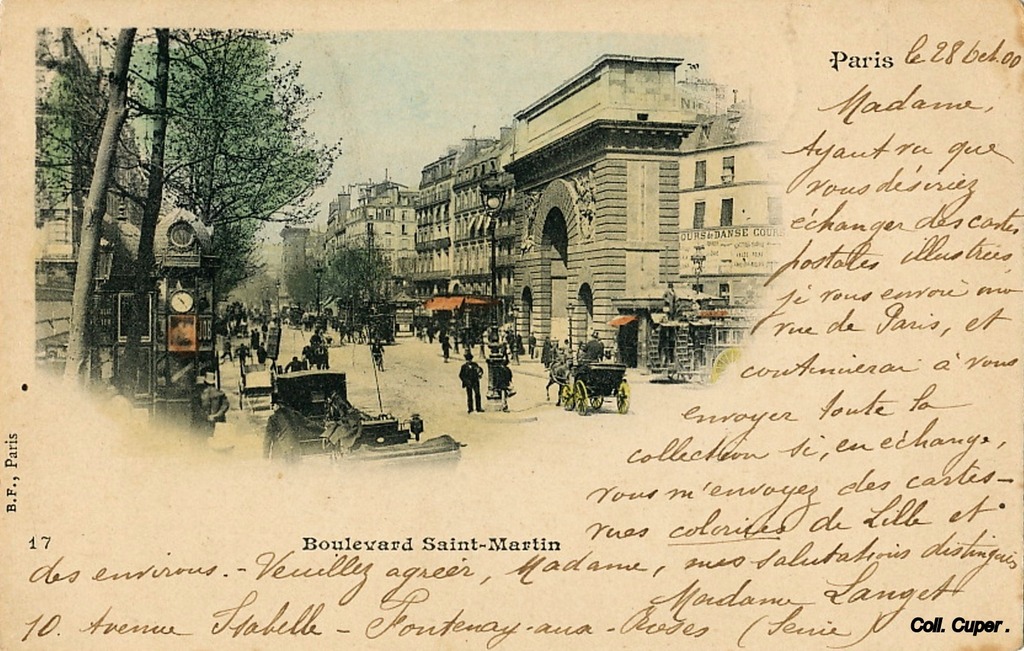 Paris le 28 Oct. 00
Madame,
Ayant vu que
vous désiriez
échanger des cartes
postales illustrées
je vous envoie une
vue de Paris, et
continuerai à vous
envoyer toute la
collection si, en échange,
vous m'envoyez des cartes-
vues coloriées de Lille et
des environs. - Veuillez agréer, Madame, mes salutations distinguées
Madame Langet
10. Avenue Isabelle - Fontenay-aux-Roses (Seine)
OURS & DANSE COURS
B.F., Paris
17
Boulevard Saint-Martin
Coll. Cuper.